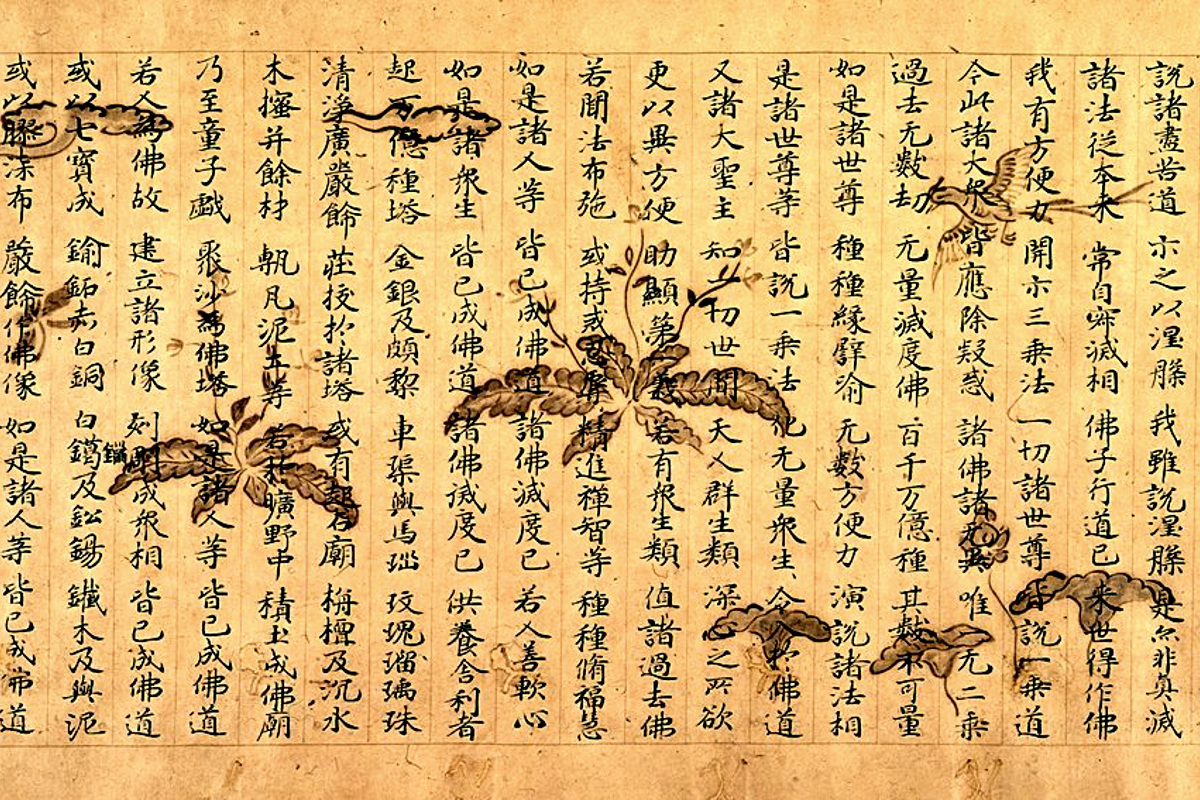 說諸盡苦道 示之以涅槃 我雖說涅槃 是亦非真滅
諸法從本來 常自寂滅相 佛子行道已 來世得作佛
我有方便力 開示三乘法 一切諸世尊 皆說一乘道
今此諸大衆 皆應除疑惑 諸佛語无異 唯一无二乘
過去无數劫 无量滅度佛 百千万億種 其數不可量
如是諸世尊 種種緣譬喻 无數方便力 演說諸法相
是諸世尊等 皆說一乘法 化无量衆生 令入於佛道
又諸大聖主 知一切世間 天人群生類 深心之所欲
更以異方便 助顯第一義 若有衆生類 值諸過去佛
若聞法布施 或持戒忍辱 精進禪智等 種種脩福慧
如是諸人等 皆已成佛道 諸佛滅度已 若人善軟心
如是諸衆生 皆已成佛道 諸佛滅度已 供養舍利者
起万億種塔 金銀及頗黎 車渠與馬瑙 玫瑰瑠璃珠
清淨廣嚴飾 莊挍於諸塔 或有起石廟 栴檀及沉水
木櫁并餘材 甎瓦泥土等 若於曠野中 積土成佛廟
乃至童子戲 聚沙為佛塔 如是諸人等 皆已成佛道
若人為佛故 建立諸形像 刻雕成衆相 皆已成佛道
或以七寶成 鍮鉐赤白銅 白鑞及鉛錫 鐵木及與泥
或以膠漆布 嚴飾作佛像 如是諸人等 皆已成佛道